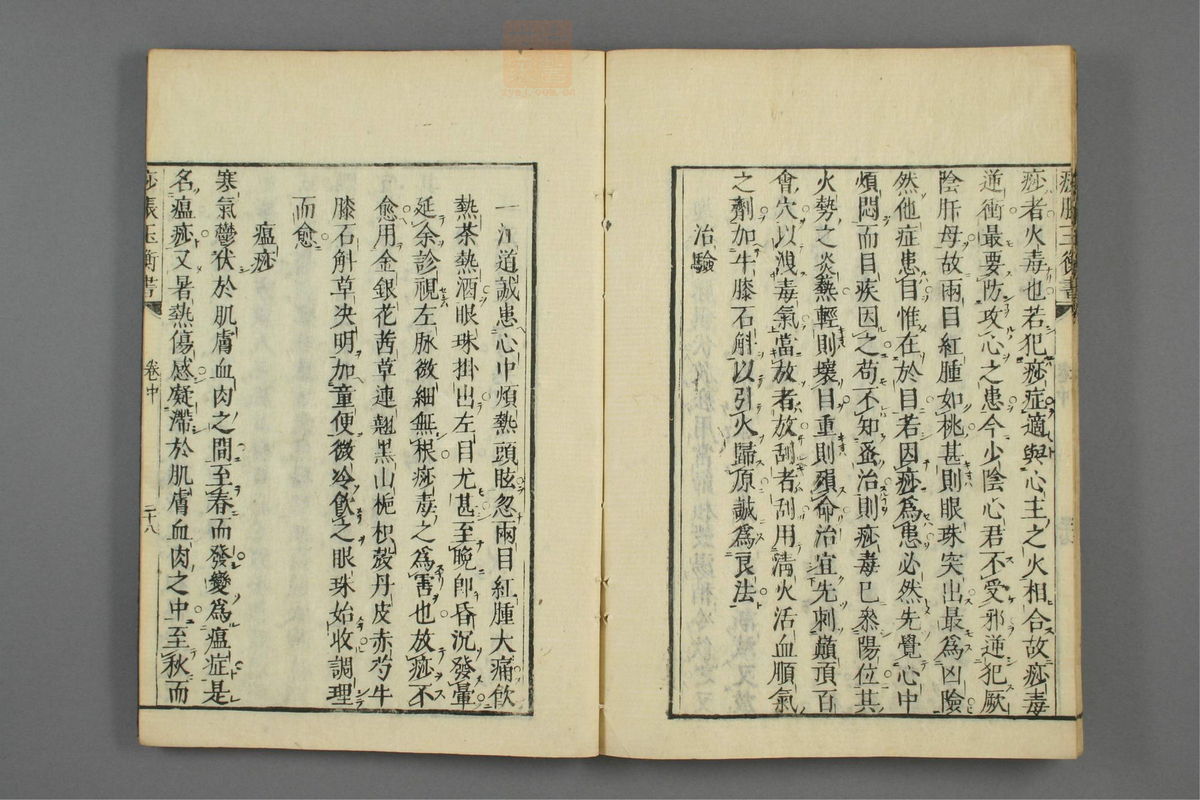 痧脹玉衡書
痧者火毒也若犯痧症適與心主之火相合故痧毒
逆衝最要防攻心之患今少陰心君不受邪逆犯厥
陰肝母故兩目紅腫如桃甚則眼珠突出最爲凶險
然他症患目惟在於目若因痧爲患必然先覺心中
煩悶而目疾因之苟不知蚤治則痧毒已叅陽位其
火勢之炎熱輕則壞目重則殞命治宜先刺巔頂百
會穴以洩毒氣當放者放刮者刮用淸火活血順氣
之劑加牛膝石斛以引火歸原誠爲良法
治驗
一江道誠患心中煩熱頭眩忽兩目紅腫大痛飮
熱茶熱酒眼珠掛出左目尤甚至晩卽昏沉發暈
延余診視左脉微細無根痧毒之爲害也放痧不
愈用金銀花茜草連翹黑山梔枳殼丹皮赤芍牛
膝石斛草决明加童便微冷飮之眼珠始收調理
而愈
瘟痧
寒氣鬱伏於肌膚血肉之間至春而發變爲瘟症是
名瘟痧又暑熱傷感凝滯於肌膚血肉之中至秋而
痧脹玉衡書
卷中
二十八